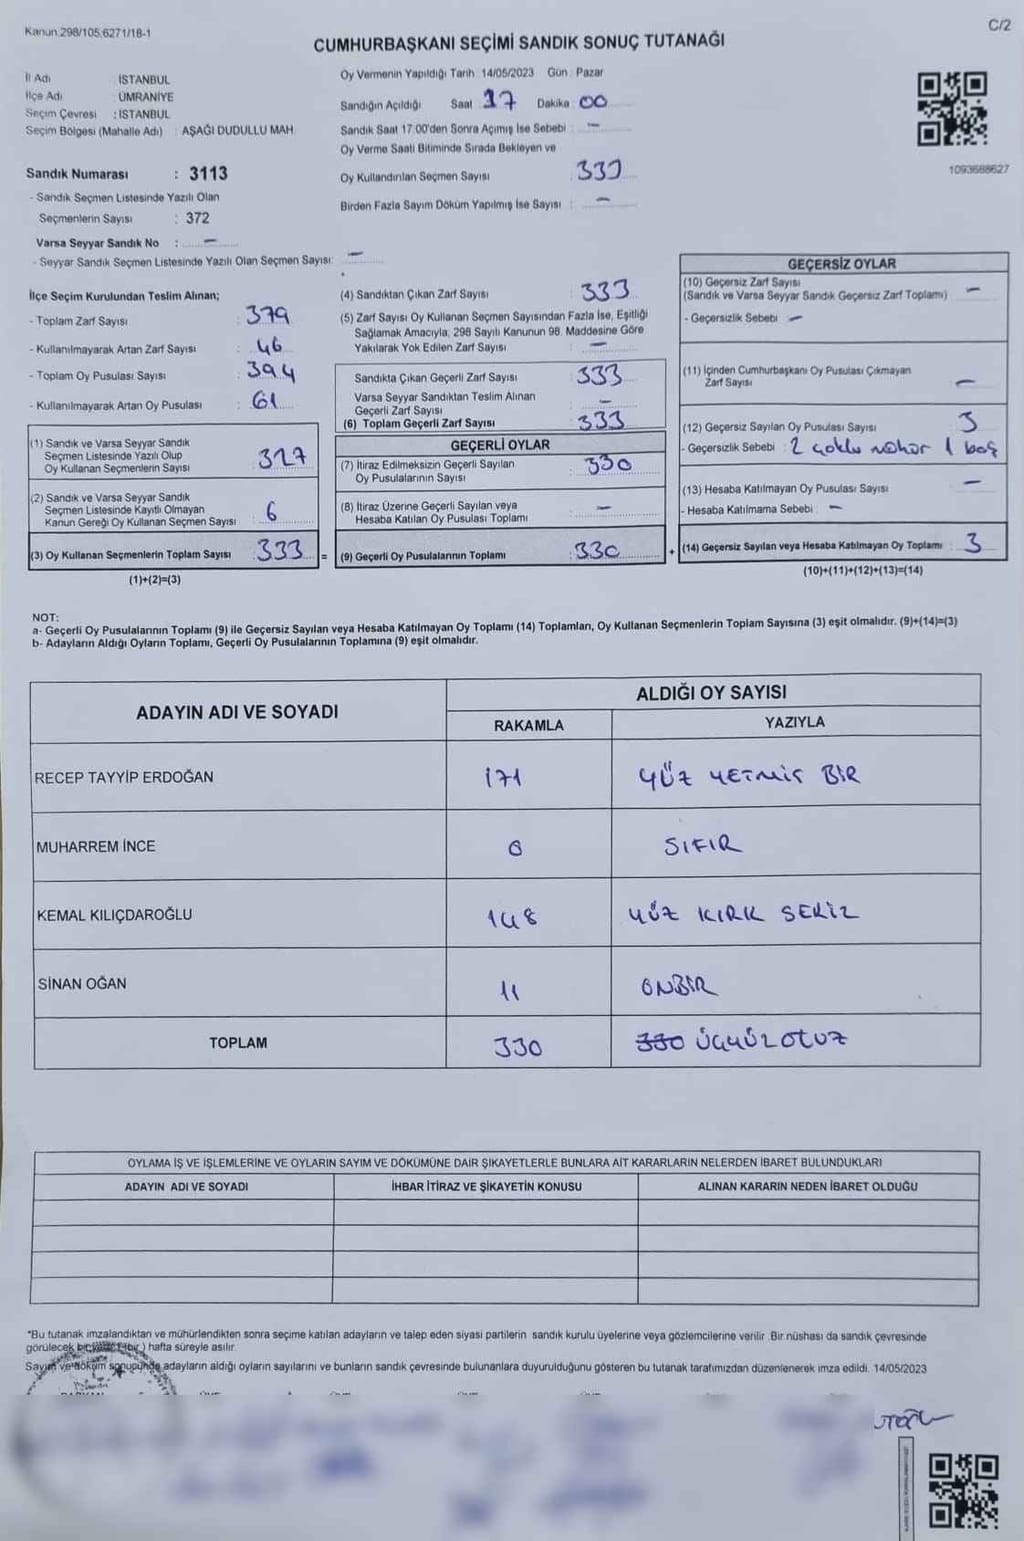 Kanun.298/105,6271/18-1
C/2
CUMHURBAŞKANI SEÇİMİ SANDIK SONUÇ TUTANAĞI
İl Adı : İSTANBUL
İlçe Adı : ÜMRANİYE
Seçim Çevresi : İSTANBUL
Seçim Bölgesi (Mahalle Adı) : AŞAĞI DUDULLU MAH.
Sandık Numarası : 3113
- Sandık Seçmen Listesinde Yazılı Olan
Seçmenlerin Sayısı : 372
Varsa Seyyar Sandık No : –
- Seyyar Sandık Seçmen Listesinde Yazılı Olan Seçmen Sayısı: –
Oy Vermenin Yapıldığı Tarih : 14/05/2023 Gün : Pazar
Sandığın Açıldığı Saat 17 Dakika 00
Sandık Saat 17:00'den Sonra Açımış İse Sebebi : –
Oy Verme Saati Bitiminde Sırada Bekleyen ve
Oy Kullandırılan Seçmen Sayısı : 333
Birden Fazla Sayım Döküm Yapılmış İse Sayısı : –
1093688627
İlçe Seçim Kurulundan Teslim Alınan;
- Toplam Zarf Sayısı : 379
- Kullanılmayarak Artan Zarf Sayısı : 46
- Toplam Oy Pusulası Sayısı : 394
- Kullanılmayarak Artan Oy Pusulası : 61
(1) Sandık ve Varsa Seyyar Sandık
Seçmen Listesinde Yazılı Olup
Oy Kullanan Seçmenlerin Sayısı 327
(2) Sandık ve Varsa Seyyar Sandık
Seçmen Listesinde Kayıtlı Olmayan
Kanun Gereği Oy Kullanan Seçmen Sayısı 6
(3) Oy Kullanan Seçmenlerin Toplam Sayısı : 333 =
(1)+(2)=(3)
(4) Sandıktan Çıkan Zarf Sayısı : 333
(5) Zarf Sayısı Oy Kullanan Seçmen Sayısından Fazla İse, Eşitliği
Sağlamak Amacıyla, 298 Sayılı Kanunun 98. Maddesine Göre
Yakılarak Yok Edilen Zarf Sayısı : –
Sandıkta Çıkan Geçerli Zarf Sayısı : 333
Varsa Seyyar Sandıktan Teslim Alınan
Geçerli Zarf Sayısı : –
(6) Toplam Geçerli Zarf Sayısı : 333
GEÇERLİ OYLAR
(7) İtiraz Edilmeksizin Geçerli Sayılan
Oy Pusulalarının Sayısı : 330
(8) İtiraz Üzerine Geçerli Sayılan veya
Hesaba Katılan Oy Pusulası Toplamı : –
(9) Geçerli Oy Pusulalarının Toplamı : 330 +
GEÇERSİZ OYLAR
(10) Geçersiz Zarf Sayısı
(Sandık ve Varsa Seyyar Sandık Geçersiz Zarf Toplamı) –
- Geçersizlik Sebebi : –
(11) İçinden Cumhurbaşkanı Oy Pusulası Çıkmayan
Zarf Sayısı –
(12) Geçersiz Sayılan Oy Pusulası Sayısı 3
- Geçersizlik Sebebi : 2 çoklu mühür 1 boş
(13) Hesaba Katılmayan Oy Pusulası Sayısı –
- Hesaba Katılmama Sebebi : –
(14) Geçersiz Sayılan veya Hesaba Katılmayan Oy Toplamı : 3
(10)+(11)+(12)+(13)=(14)
NOT:
a- Geçerli Oy Pusulalarının Toplamı (9) ile Geçersiz Sayılan veya Hesaba Katılmayan Oy Toplamı (14) Toplamları, Oy Kullanan Seçmenlerin Toplam Sayısına (3) eşit olmalıdır. (9)+(14)=(3)
b- Adayların Aldığı Oyların Toplamı, Geçerli Oy Pusulalarının Toplamına (9) eşit olmalıdır.
ADAYIN ADI VE SOYADI ALDIĞI OY SAYISI
RAKAMLA YAZIYLA
RECEP TAYYİP ERDOĞAN 171 YÜZ YETMİŞ BİR
MUHARREM İNCE 0 SIFIR
KEMAL KILIÇDAROĞLU 148 YÜZ KIRK SEKİZ
SİNAN OĞAN 11 ONBİR
TOPLAM 330 330 ÜÇYÜZOTUZ
OYLAMA İŞ VE İŞLEMLERİNE VE OYLARIN SAYIM VE DÖKÜMÜNE DAİR ŞİKAYETLERLE BUNLARA AİT KARARLARIN NELERDEN İBARET BULUNDUKLARI
ADAYIN ADI VE SOYADI İHBAR İTİRAZ VE ŞİKAYETİN KONUSU ALINAN KARARIN NEDEN İBARET OLDUĞU
*Bu tutanak imzalandıktan ve mühürlendikten sonra seçime katılan adayların ve talep eden siyasi partilerin sandık kurulu üyelerine veya gözlemcilerine verilir. Bir nüshası da sandık çevresinde
görülecek bir yere 1 (bir) hafta süreyle asılır.
Sayım ve döküm sonucunda adayların aldığı oyların sayılarını ve bunların sandık çevresinde bulunanlara duyurulduğunu gösteren bu tutanak tarafımızdan düzenlenerek imza edildi. 14/05/2023